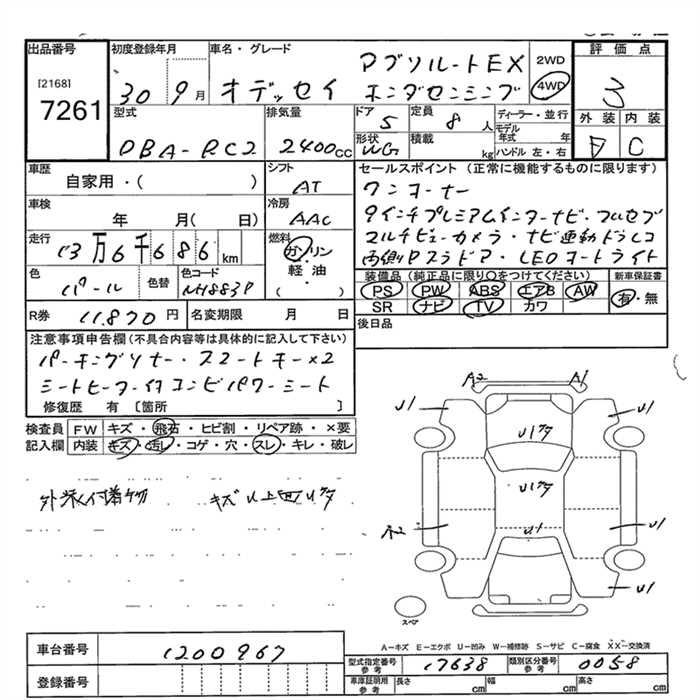 出品番号 初度登録年月 車名・グレード 2WD 評価点
[2168] アブソルートEX 4WD 3
7261 30 9月 オデッセイ ホンダセンシング
型式 排気量 ドア 定員 ディーラー・並行 外装 内装
5 8人 モデル年式 年
DBA-RC2 2400cc 形状 積載 ハンドル 左・右 C
WG kg
車歴 シフト セールスポイント(正常に機能するものに限ります)
自家用・( ) AT ワンオーナー
車検 冷房 9インチプレミアムインターナビ・フルセグ
年 月( 日) AAC マルチビューカメラ・ナビ連動ドラレコ
走行 燃料 両側Pスラドア・LEDオートライト
13万6千686km ガソリン
軽油 装備品(純正品に限り○をつけてください) 新車保証書
色 色替 色コード ( ) PS PW ABS エアB AW 有・無
パール NH883P SR ナビ TV カワ
R券 11.870円 名変期限 月 日 後日品
注意事項申告欄(不具合内容等は具体的に記入して下さい)
パーキングソナー・スマートキー×2
シートヒーター付コンビパワーシート
修復歴 有 [箇所 ]
検査員 FW キズ・飛石・ヒビ割・リペア跡・×要
記入欄 内装 キズ・汚レ・コゲ・穴・スレ・キレ・破レ
外装付着物 キズ
A2 A1
U1 U1
A2 U1 U1
U1
スペア
A-キズ E-エクボ U-凹み W-補修跡 S-サビ C-腐食 XX-交換済
車台番号 1200967 型式指定番号 参考 17638 類別区分番号 参考 0058
登録番号 車庫証明用 参考 長さ cm 幅 cm 高さ cm